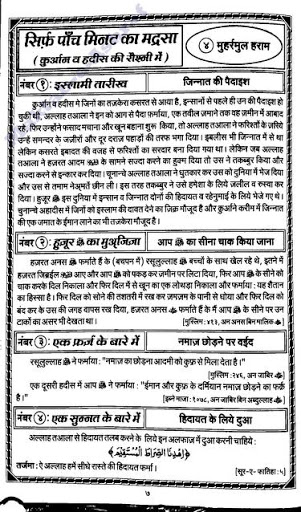 सिर्फ़ पाँच मिनट का मद्रसा
(क़ुर्आन व हदीस की रौश्नी में)
४ मुहर्रमुल हराम
नंबर १: इस्लामी तारीख जिन्नात की पैदाइश
क़ुर्आन व हदीस मे जिनों का तज़केरा कसरत से आया है, इन्सानों से पहले ही उन की पैदाइश हो
चुकी थी, अल्लाह तआला ने इन को आग से पैदा फ़र्माया, एक तवील ज़माने तक वह ज़मीन में आबाद
रहे, फिर उन्होंने फसाद मचाना और खून बहाना शुरू किया, तो अल्लाह तआला ने फरिश्तों के ज़रिये
उन्हे समन्दर के जज़ीरों और दूर दराज़ पहाड़ों की तरफ भगा दिया। इबलीस भी जिन्नात में से था
लेकिन कसरते इबादत की वजह से फरिश्तों का सरदार बना दिया गया था। लेकिन जब अल्लाह
तआला ने हज़रत आदम के सामने सज्दा करने का हुक्म दिया तो उस ने तकब्बुर किया और
सज्दा करने से इन्कार कर दिया। चुनान्चे अल्लाह तआला ने धुतकार कर उस को दुनिया में भेज दिया
और उस से तमाम नेअ्मतें छीन ली। इस तरह तकब्बुर ने उसे हमेशा के लिये ज़लील व रुस्वा कर
दिया। हुज़ूर ﷺ इस दुनिया में इन्सान व जिन्नात दोनों की हिदायत व रहेनुमाई के लिये भेजे गए थे।
चुनान्चे अहादीस में जिनों को इस्लाम की दावत देने का ज़िक्र मौजूद है और क़ुर्आने करीम में जिन्नात
की एक जमात के ईमान लाने का भी तज़केरा मौजूद है।
नंबर २: हुज़ूर ﷺ का मुअ्जिज़ा आप ﷺ का सीना चाक किया जाना
हज़रत अनस फ़र्माते हैं के (बचपन में) रसूलुल्लाह ﷺ बच्चों के साथ खेल रहे थे, इतने में
हज़रत जिब्रईल आए और आप ﷺ को पकड़ कर ज़मीन पर लिटा दिया, फिर आप ﷺ के सीने को
चाक करके दिल निकाला और फिर दिल में से खून का एक लोथड़ा निकाला और फ़र्माया : यह शैतान
का हिस्सा है। फिर दिल को सोने की तशतरी में रख कर ज़मज़म के पानी से धोया और फिर दिल को
बंद कर के उस की जगह वापस रख दिया, हज़रत अनस फ़र्माते हैं के मैं आप ﷺ के सीने पर उन
टाकों का असर भी देखता था। [मुस्लिम : ४१३, अन अनस बिन मालिक]
नंबर ३: एक फ़र्ज़ के बारे में नमाज़ छोड़ने पर वईद
रसूलुल्लाह ﷺ ने फ़र्माया : "नमाज़ का छोड़ना आदमी को कुफ़्र से मिला देता है।"
[मुस्लिम : २४६, अन जाबिर]
एक दूसरी हदीस में आप ﷺ ने फ़र्माया : "ईमान और कुफ़्र के दर्मियान नमाज़ छोड़ने का फ़र्क
है।" [इब्ने माजा : १०७८, अन जाबिर बिन अब्दुल्लाह]
नंबर ४: एक सुन्नत के बारे में हिदायत के लिये दुआ
अल्लाह तआला से हिदायत तलब करने के लिये इन अलफाज़ में दुआ करनी चाहिये :
﴿اِهْدِنَا الصِّرَاطَ الْمُسْتَقِيْمَ﴾
तर्जमा : ऐ अल्लाह हमें सीधे रास्ते की हिदायत फर्मा। [सूर-ए- फातिहा : ५]
७